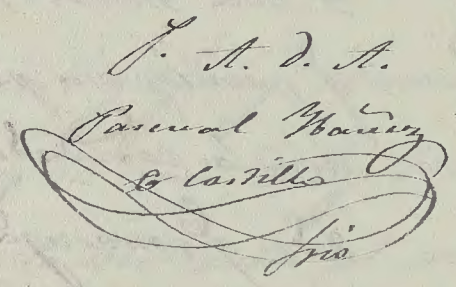 P. A. d. A.
Pascual Ybañez
Castillo
Srio